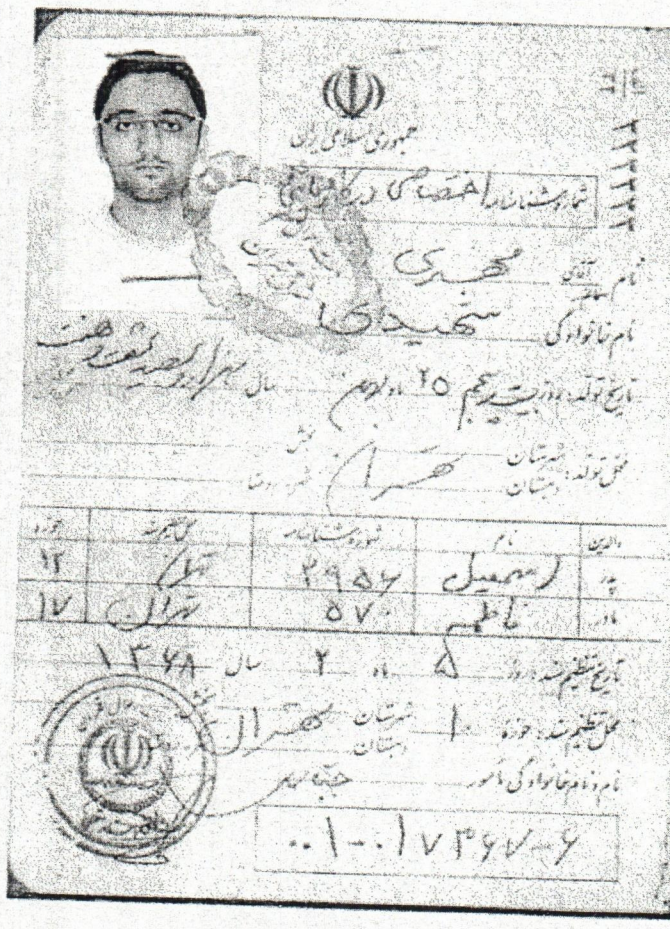 جمهوری اسلامی ایران
شماره شناسنامه اختصاصی
۲۲۲۲۲۲
نام آقای مهدی
نام خانوادگی
تاریخ تولد: روز بیست و پنجم ۲۵ ماه بهمن سال هزار و سیصد و شصت و هفت
محل تولد: شهرستان تهران بخش
دهستان
والدین نام شماره شناسنامه محل صدور حوزه
پدر اسمعیل ۳۹۵۶ تهران ۱۲
مادر فاطمه ۵۷۰ تهران ۱۷
تاریخ تنظیم سند: روز ۵ ماه ۲ سال ۱۳۶۸
محل تنظیم سند: حوزه ۱۰ شهرستان تهران بخش
دهستان
نام و نام خانوادگی مامور
۰۰۱-۰۱۷۳۶۷-۶